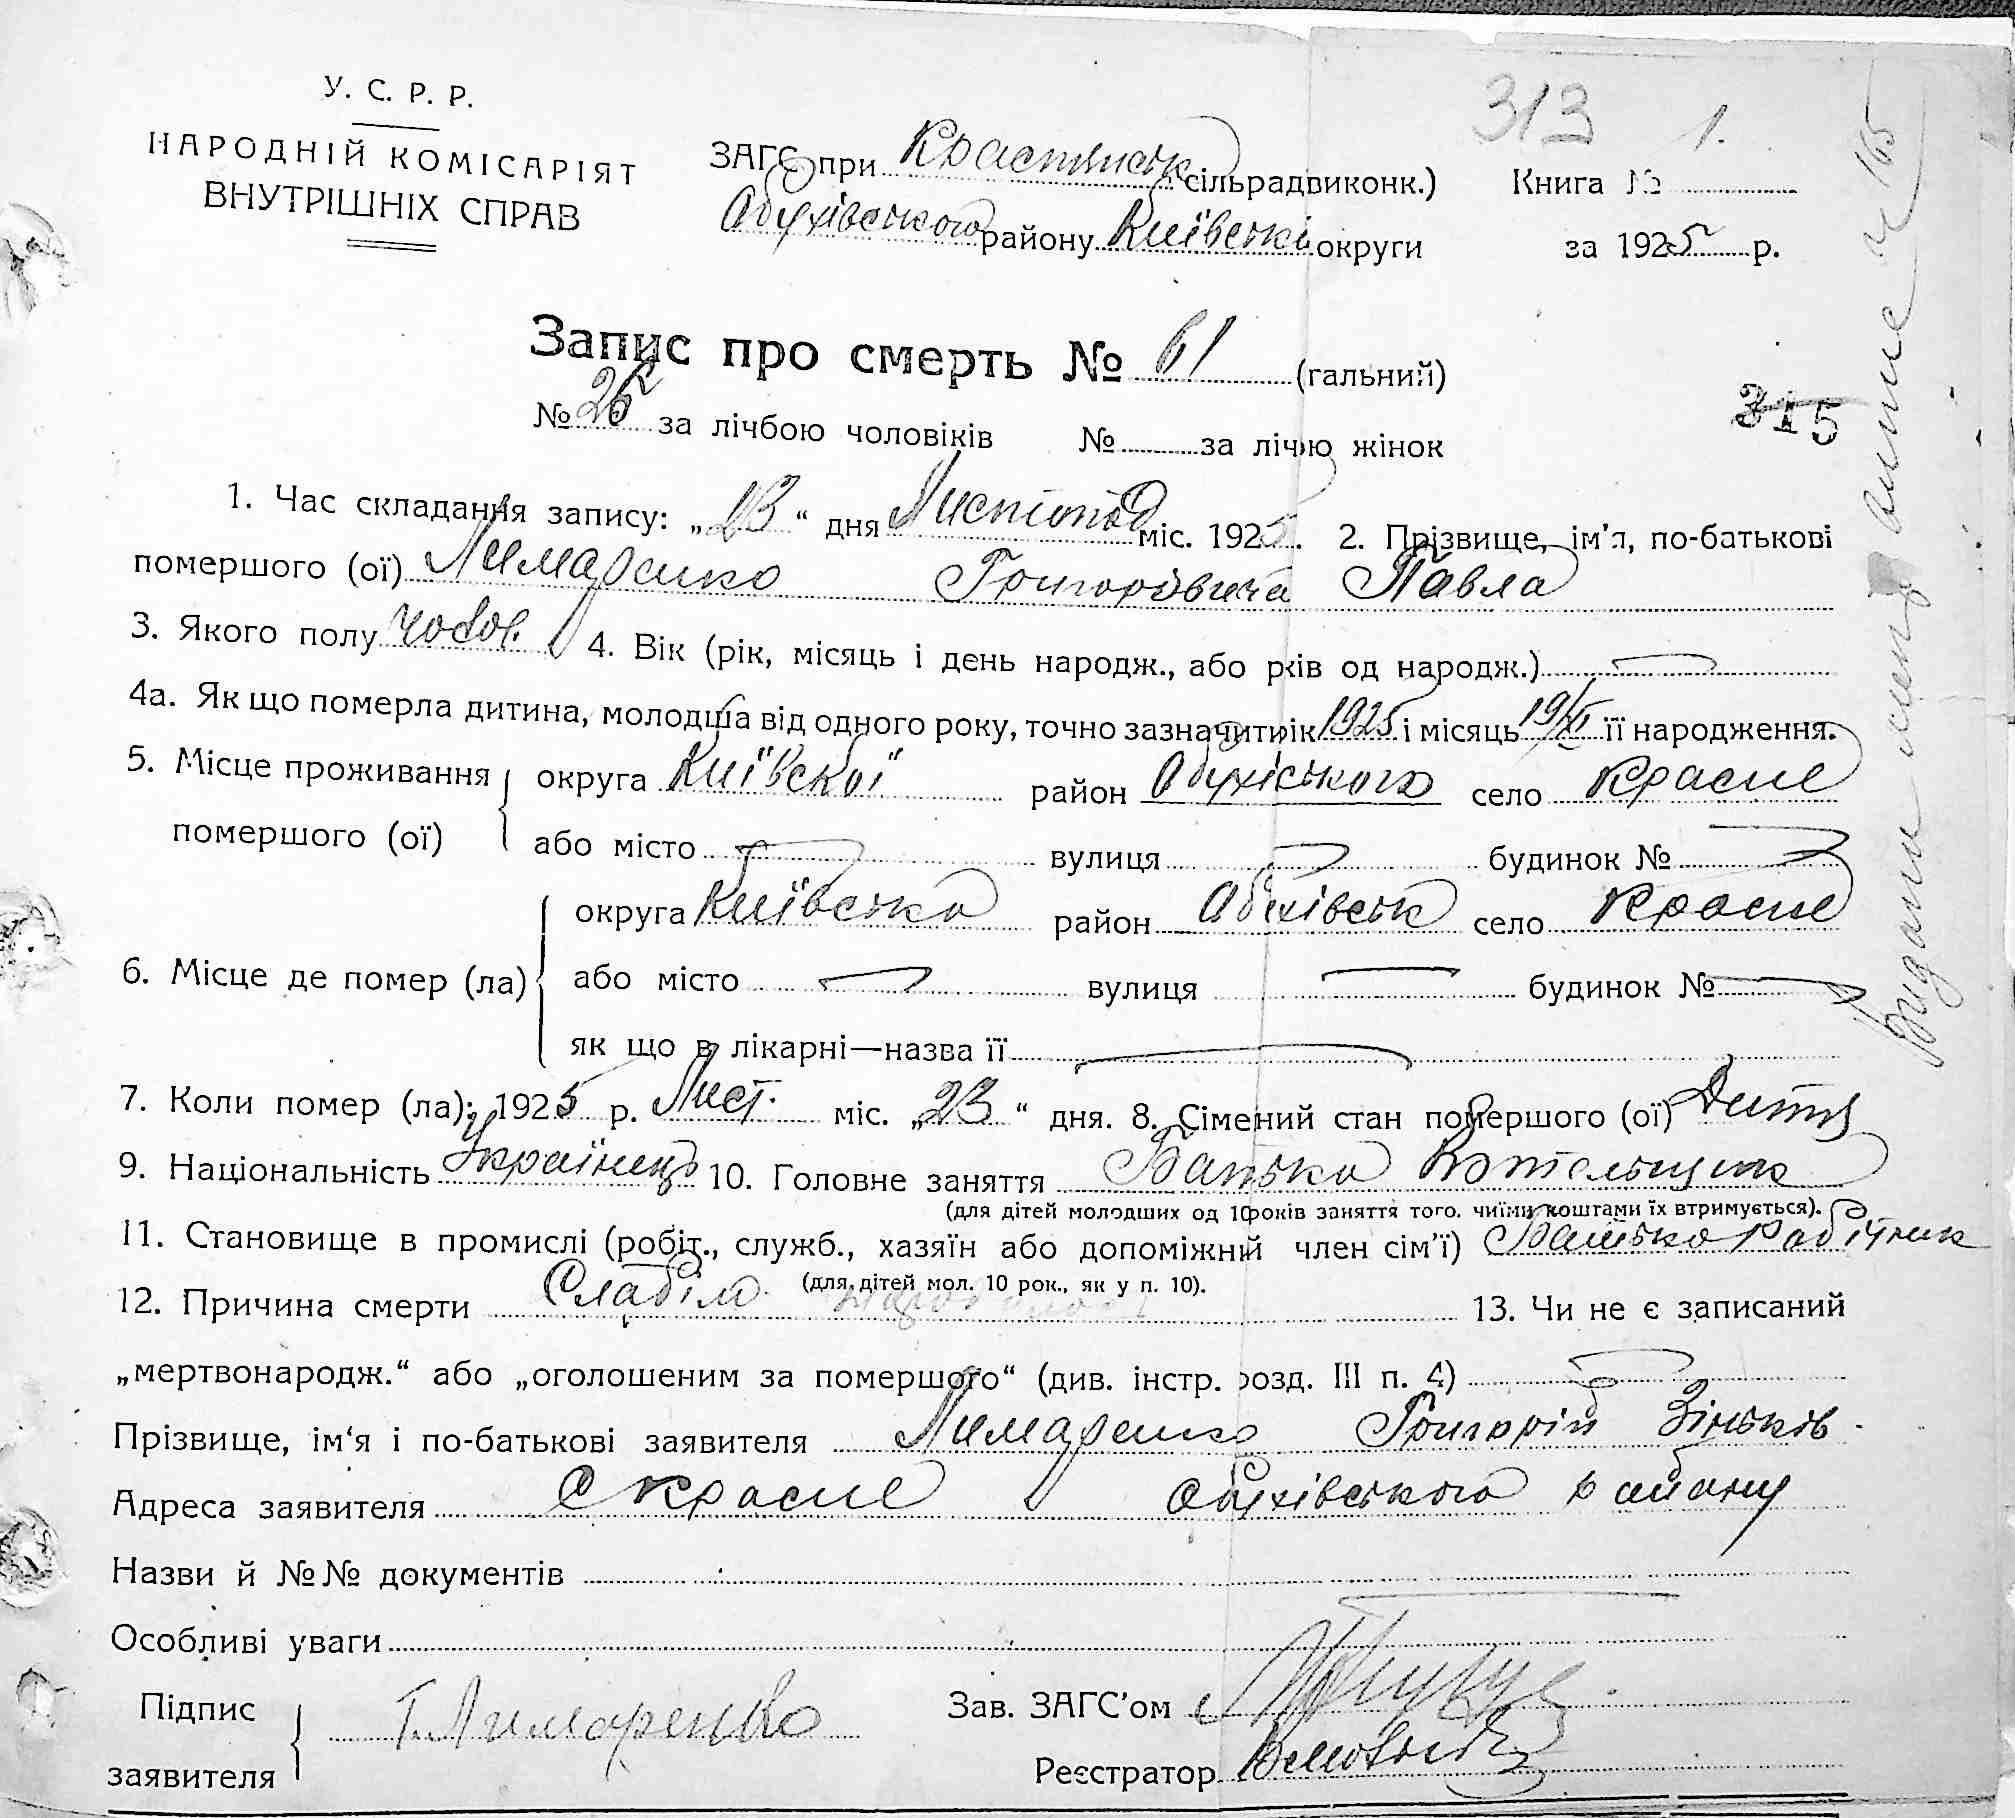 У. С. Р. Р.
НАРОДНІЙ КОМІСАРІЯТ
ВНУТРІШНІХ СПРАВ
313 1.
ЗАГС при Краснянськ сільрадвиконк.) Книга №
Обухівського району Київської округи за 1925 р.
Запис про смерть № 61 (гальний)
№ 26 за лічбою чоловіків № за лічю жінок
315
1. Час складання запису: „23“ дня Листопад міс. 1925. 2. Прізвище, ім'я, по-батькові
помершого (ої) Лимаренко Григоровича Павла
3. Якого полу чолов. 4. Вік (рік, місяць і день народж., або рків од народж.)
4а. Як що померла дитина, молодша від одного року, точно зазначитирік 1925 і місяць 19/XI її народження.
5. Місце проживання помершого (ої) округа Київської район Обухівського село Красне
або місто вулиця будинок №
6. Місце де помер (ла) округа Київська район Обухівськ село Красне
або місто вулиця будинок №
як що в лікарні—назва її
7. Коли помер (ла): 1925 р. Лист. міс. „23“ дня. 8. Сімений стан помершого (ої) Дитя
9. Національність Українець 10. Головне заняття Батько
(для дітей молодших од 10років заняття того, чиїми коштами їх втримується).
11. Становище в промислі (робіт., служб., хазяїн або допоміжний член сім'ї) Батько робітник
(для дітей мол. 10 рок., як у п. 10).
12. Причина смерти Слабіло 13. Чи не є записаний
„мертвонародж.“ або „оголошеним за помершого“ (див. інстр. розд. III п. 4)
Прізвище, ім'я і по-батькові заявителя Лимаренко Григорій Зіньків
Адреса заявителя С Красне Обухівського району
Назви й №№ документів
Особливі уваги
Підпис заявителя Г. Лимаренко Зав. ЗАГС'ом
Реєстратор